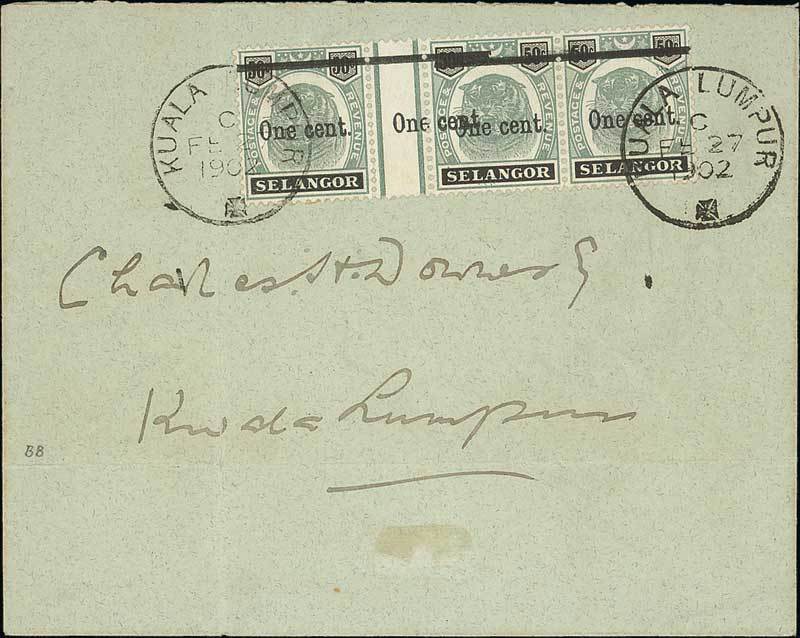 50c 50c 50c 50c 50c 50c
POSTAGE & REVENUE POSTAGE & REVENUE POSTAGE & REVENUE
One cent. One cent. One cent. One cent.
SELANGOR SELANGOR SELANGOR
KUALA LUMPUR
C
FE
1902
KUALA LUMPUR
C
FE 27
1902
Charles. H. Downes
Kuala Lumpur
BB